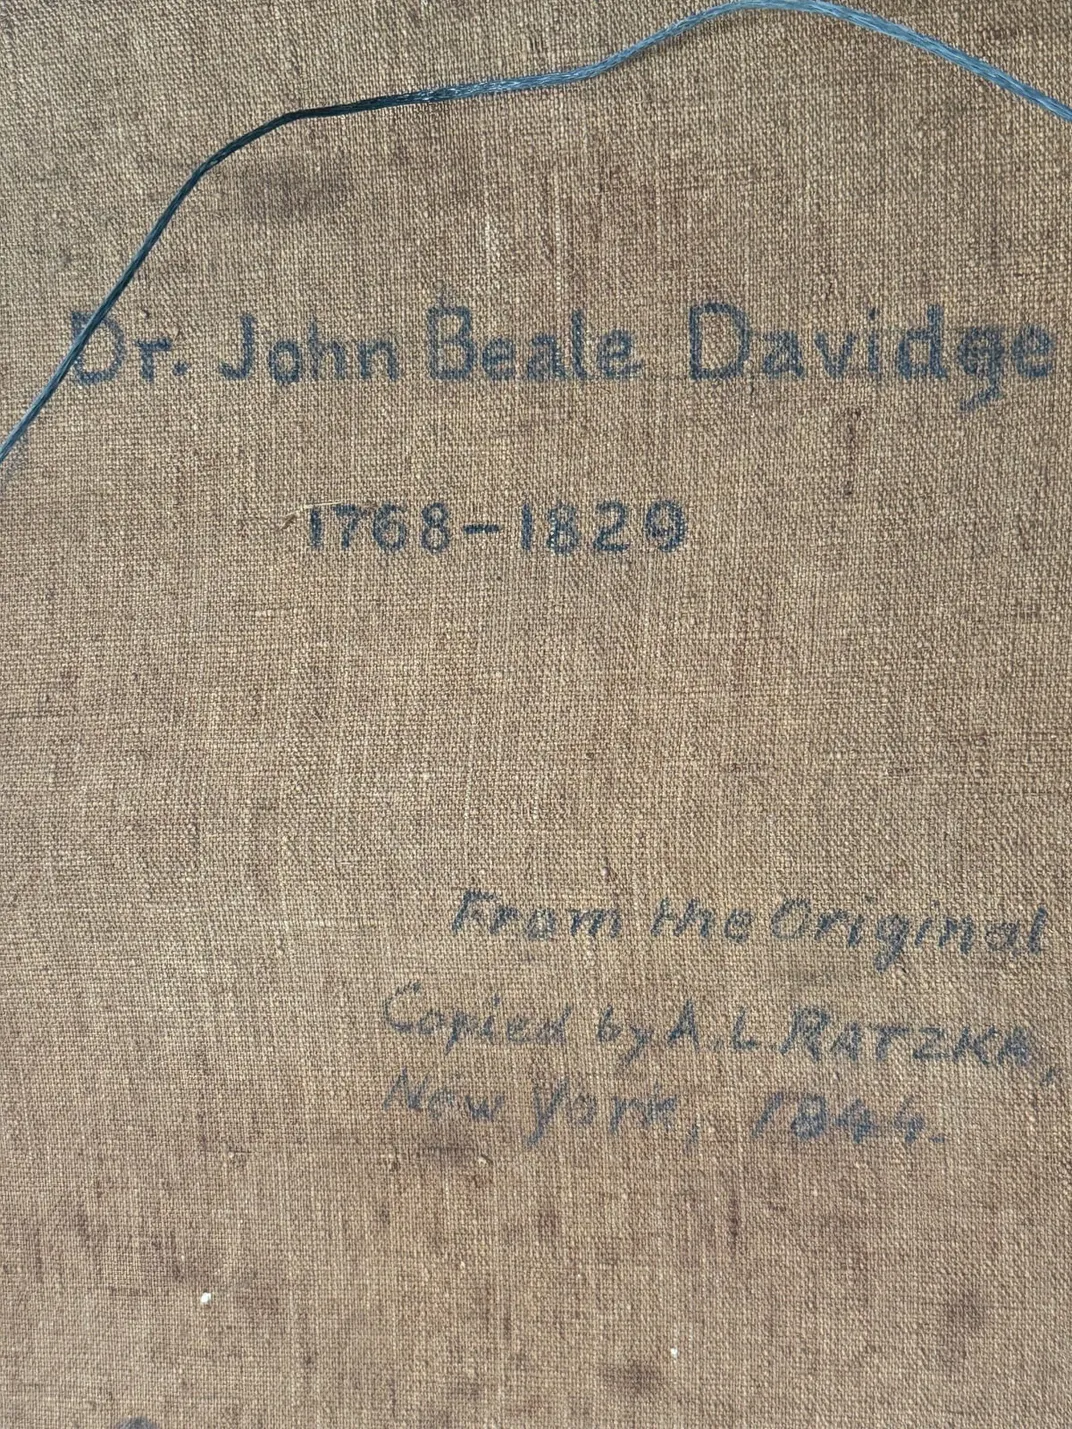 Dr. John Beale Davidge
1768-1829
From the Original
Copied by A.L. RATZKA,
New York, 1944.